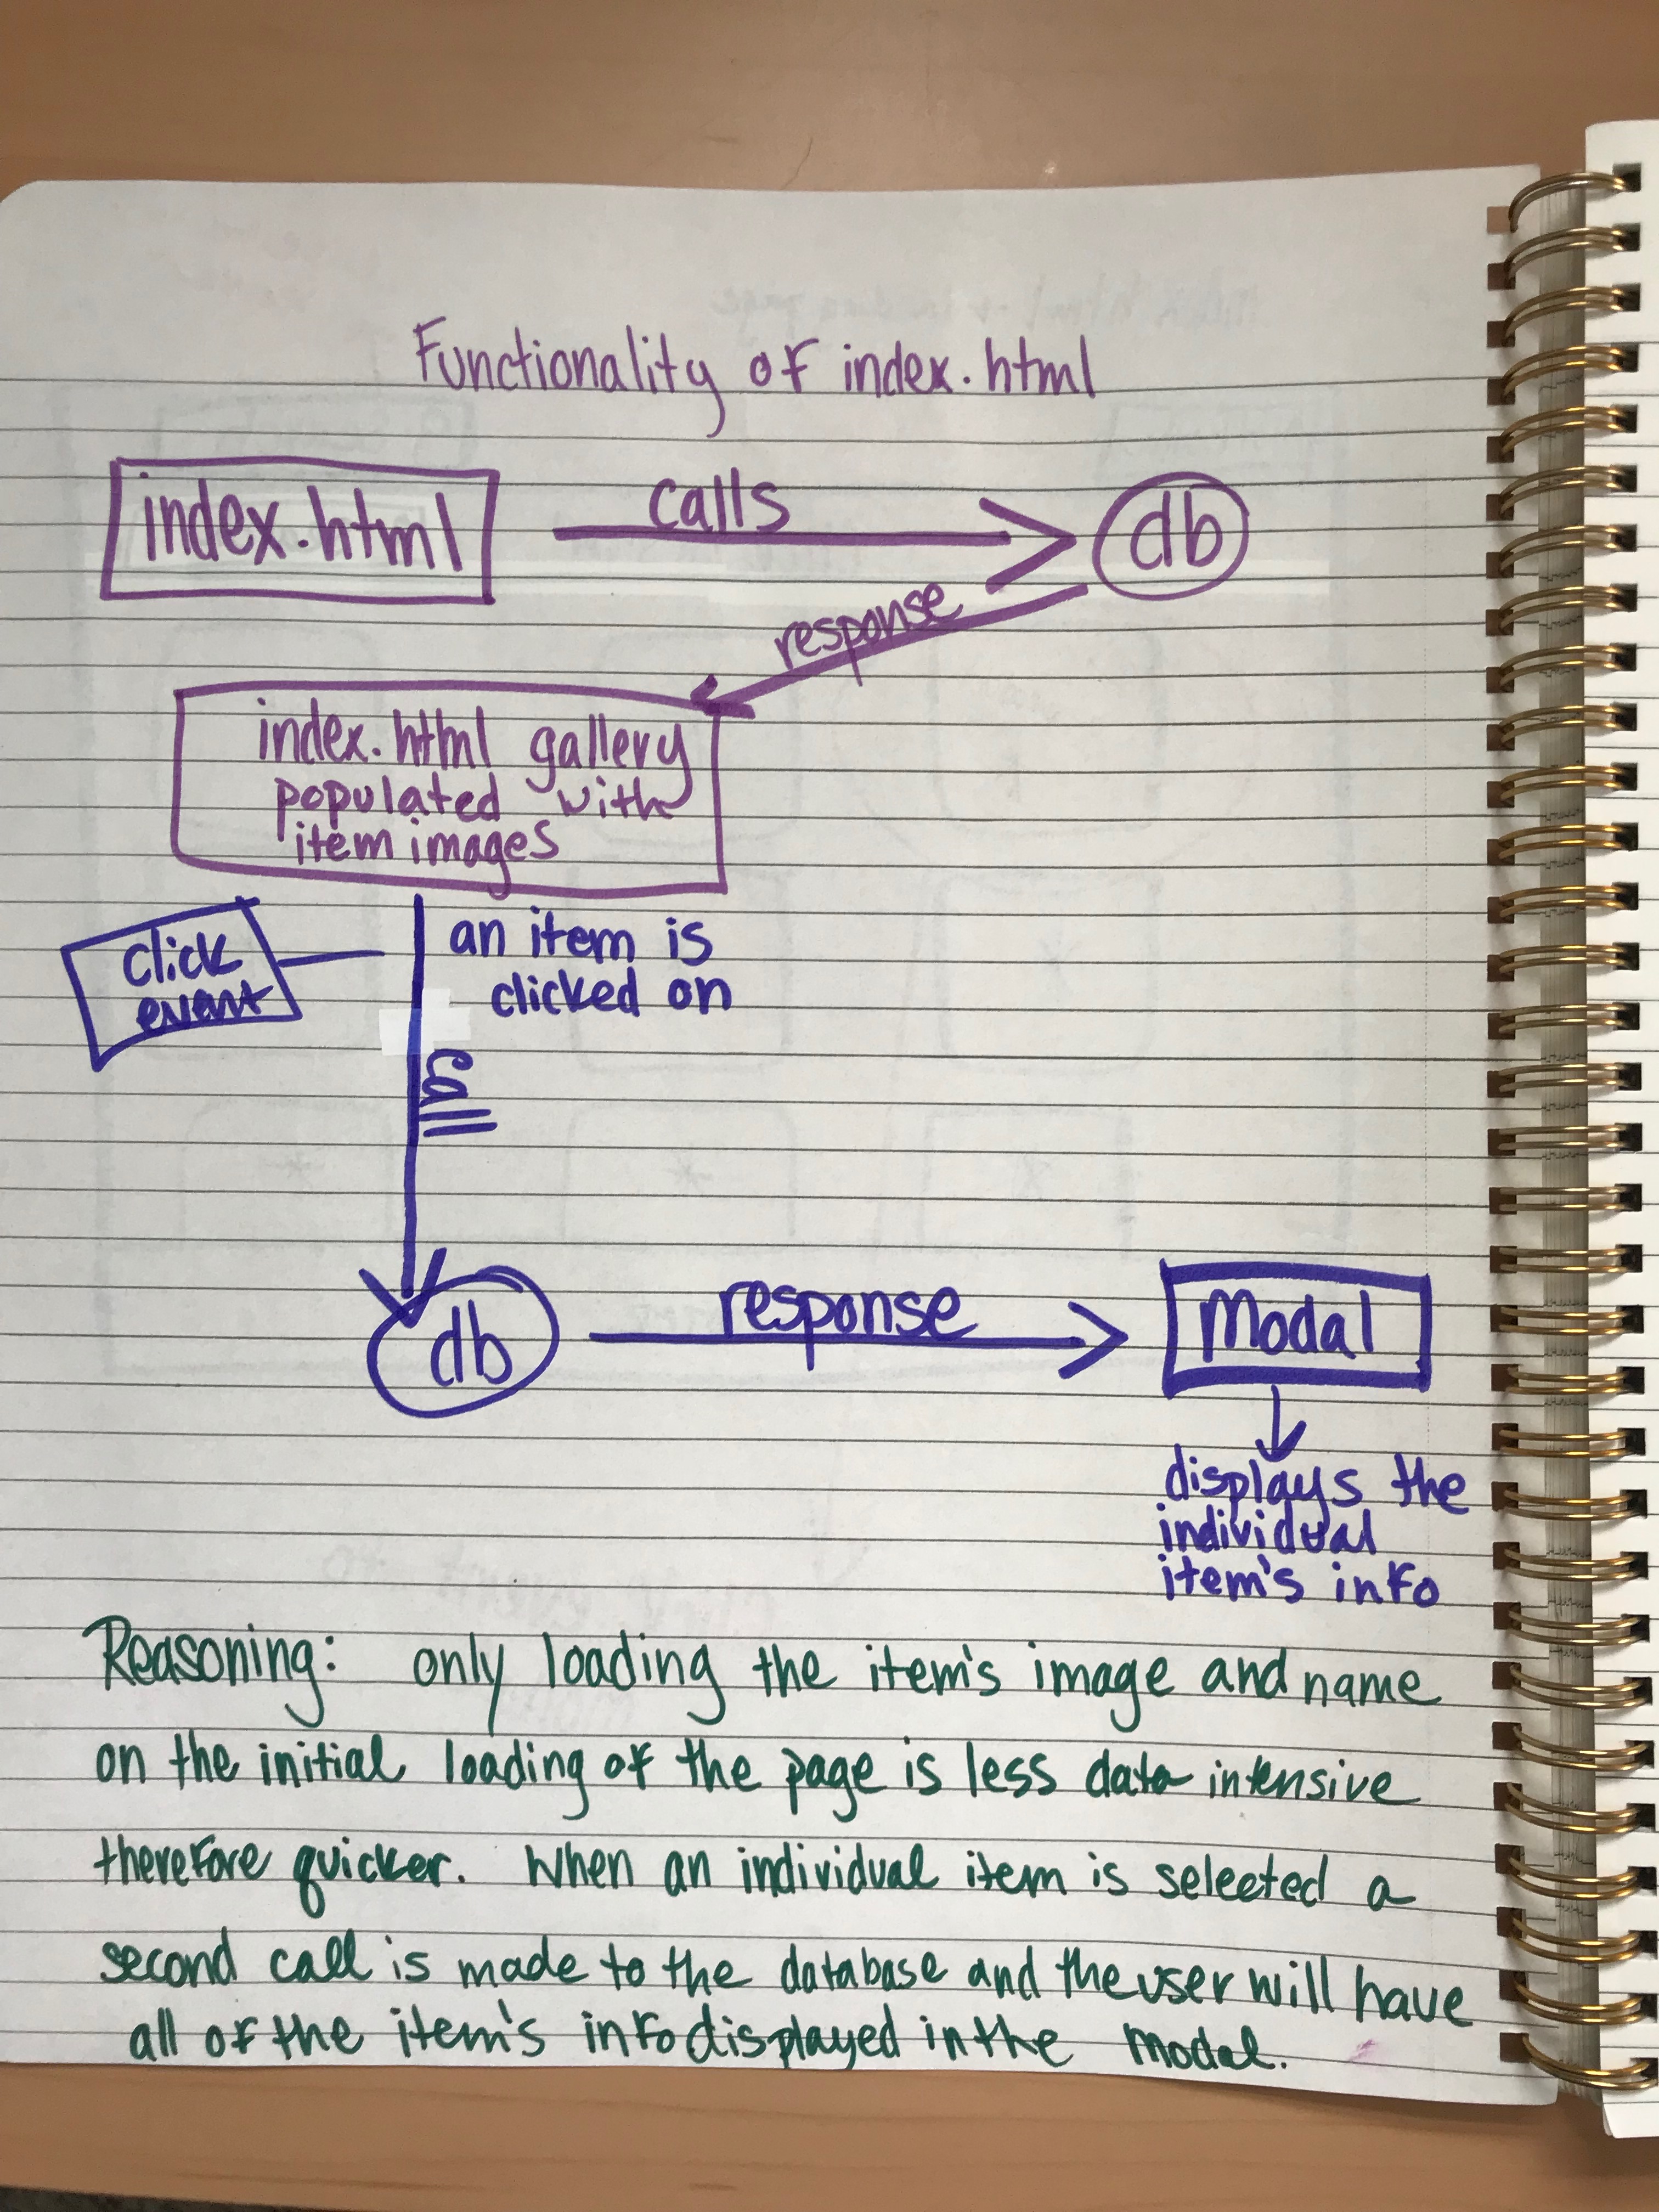 Functionality of index.html
index.html
calls
db
response
index.html gallery
populated with
item images
click
event
an item is
clicked on
call
db
response
Modal
displays the
individual
item's info
Reasoning: only loading the item's image and name
on the initial loading of the page is less data intensive
therefore quicker. When an individual item is selected a
second call is made to the database and the user will have
all of the item's info displayed in the modal.